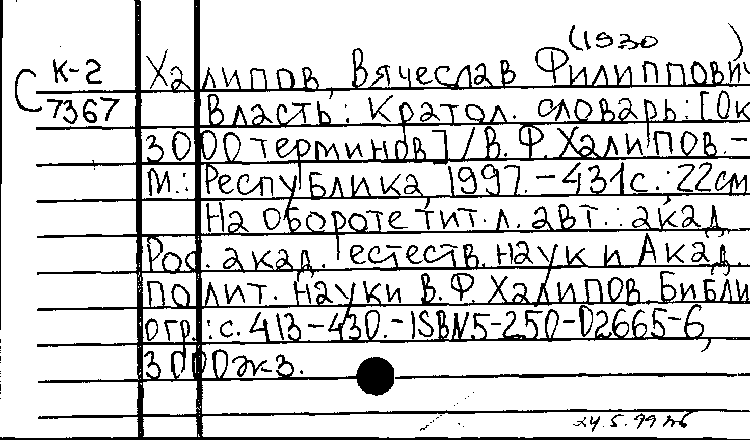 (1930 )
К-2 Халипов, Вячеслав Филиппович
С 7367 Власть: Кратол. словарь: [Ок
3000 терминов] / В. Ф. Халипов. -
М.: Республика, 1997. - 431с.; 22см
На обороте тит. л. авт.: акад.
Рос. акад. естеств. наук и Акад.
полит. науки В. Ф. Халипов. Библи
огр.: с. 413-430. - ISBN 5-250-02665-6,
3000экз.
24.5.99